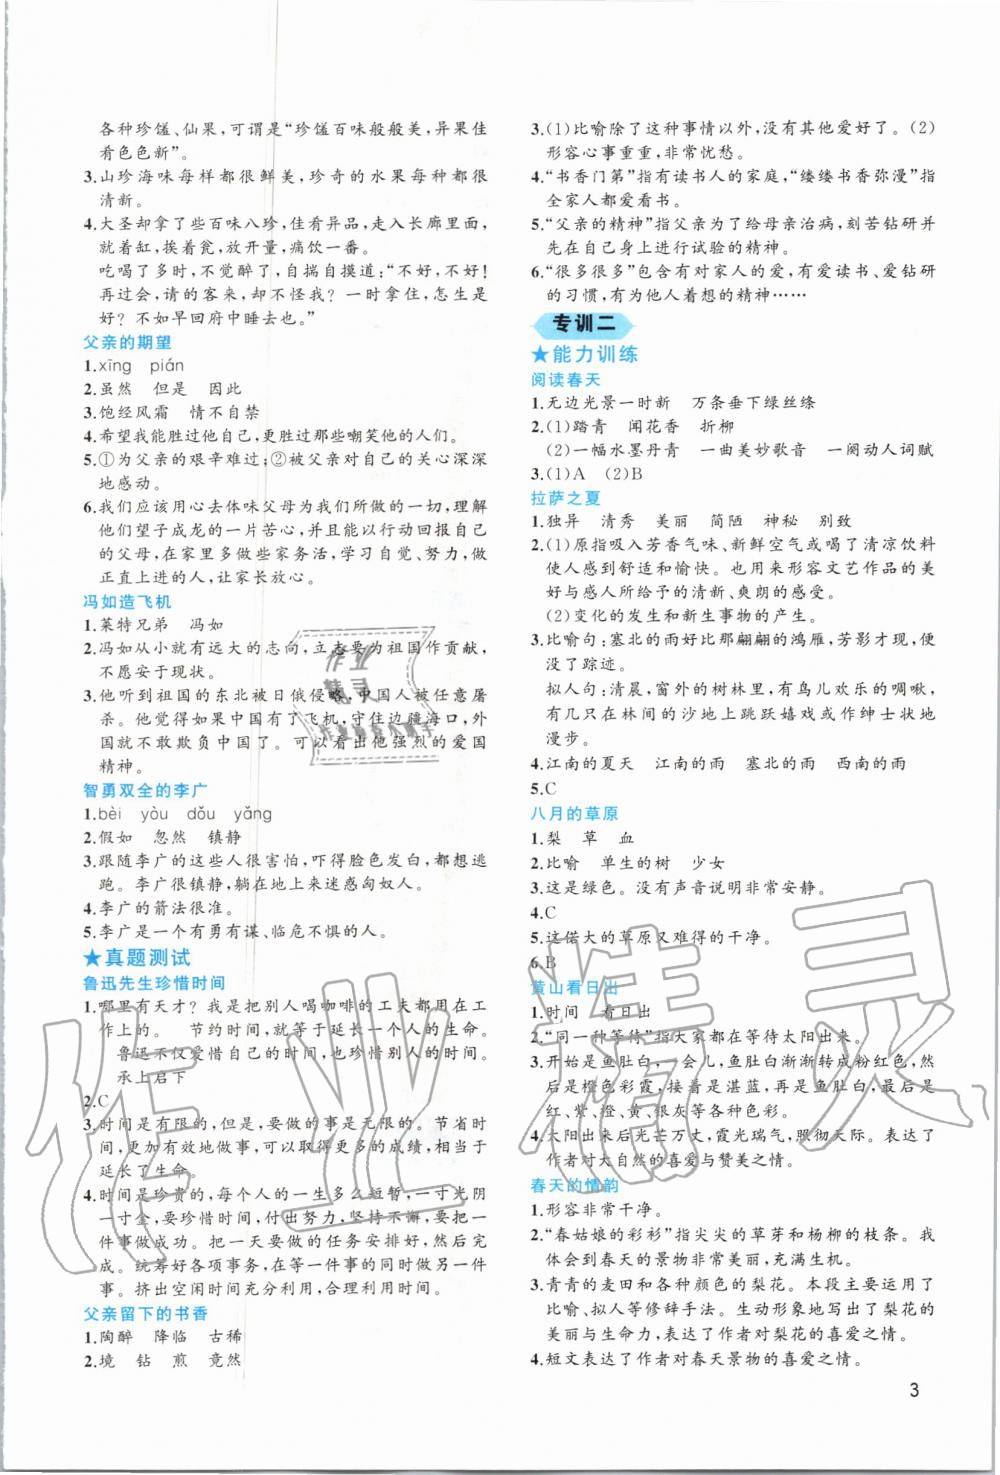 各种珍馐、仙果,可谓是“珍馐百味般般美,异果佳
肴色色新”。
3.山珍海味每样都很鲜美,珍奇的水果每种都很
清新。
4.大圣却拿了些百味八珍,佳肴异品,走入长廊里面,
就着缸,挨着瓮,放开量,痛饮一番。
吃喝了多时,不觉醉了,自揣自摸道:“不好,不好!
再过会,请的客来,却不怪我?一时拿住,怎生是
好?不如早回府中睡去也。”
父亲的期望
1.xīng pián
2.虽然 但是 因此
3.饱经风霜 情不自禁
4.希望我能胜过他自己,更胜过那些嘲笑他的人们。
5.①为父亲的艰辛难过;②被父亲对自己的关心深深
地感动。
6.我们应该用心去体味父母为我们所做的一切,理解
他们望子成龙的一片苦心,并且能以行动回报自己
的父母,在家里多做些家务活,学习自觉、努力,做
正直上进的人,让家长放心。
冯如造飞机
1.莱特兄弟 冯如
2.冯如从小就有远大的志向,立志要为祖国作贡献,
不愿安于现状。
3.他听到祖国的东北被日俄侵略,中国人被任意屠
杀。他觉得如果中国有了飞机,守住边疆海口,外
国就不敢欺负中国了。可以看出他强烈的爱国
精神。
智勇双全的李广
1.bèi yòu dǒu yǎng
2.假如 忽然 镇静
3.跟随李广的这些人很害怕,吓得脸色发白,都想逃
跑。李广很镇静,躺在地上来迷惑匈奴人。
4.李广的箭法很准。
5.李广是一个有勇有谋、临危不惧的人。
★真题测试
鲁迅先生珍惜时间
1.哪里有天才?我是把别人喝咖啡的工夫都用在工
作上的。 节约时间,就等于延长一个人的生命。
鲁迅不仅爱惜自己的时间,也珍惜别人的时间。
承上启下
2.C
3.时间是有限的,但是,要做的事是无限的。节省时
间,更加有效地做事,可以取得更多的成绩,相当于
延长了生命。
4.时间是珍贵的,每个人的一生多么短暂,一寸光阴
一寸金,要珍惜时间,付出努力,坚持不懈,要把一
件事做成功。把一天要做的任务安排好,然后完
成。统筹好各项事务,在等一件事的同时做另一件
事。挤出空闲时间充分利用,合理利用时间。
父亲留下的书香
1.陶醉 降临 古稀
2.境 钻 煎 竟然
3.(1)比喻除了这种事情以外,没有其他爱好了。(2)
形容心事重重,非常忧愁。
4.“书香门第”指有读书人的家庭,“缕缕书香弥漫”指
全家人都爱看书。
5.“父亲的精神”指父亲为了给母亲治病,刻苦钻研并
先在自己身上进行试验的精神。
6.“很多很多”包含有对家人的爱,有爱读书、爱钻研
的习惯,有为他人着想的精神……
专训二
★能力训练
阅读春天
1.无边光景一时新 万条垂下绿丝绦
2.(1)踏青 闻花香 折柳
(2)一幅水墨丹青 一曲美妙歌音 一阕动人词赋
3.(1)A (2)B
拉萨之夏
1.独异 清秀 美丽 简陋 神秘 别致
2.(1)原指吸入芳香气味、新鲜空气或喝了清凉饮料
使人感到舒适和愉快。也用来形容文艺作品的美
好与感人所给予的清新、爽朗的感受。
(2)变化的发生和新生事物的产生。
3.比喻句:塞北的雨好比那翩翩的鸿雁,芳影才现,便
没了踪迹。
拟人句:清晨,窗外的树林里,有鸟儿欢乐的啁啾,
有几只在林间的沙地上跳跃嬉戏或作绅士状地
漫步。
4.江南的夏天 江南的雨 塞北的雨 西南的雨
5.C
八月的草原
1.梨 草 血
2.比喻 单生的树 少女
3.这是绿色。没有声音说明非常安静。
4.C
5.这偌大的草原又难得的干净。
6.B
黄山看日出
1.时间 看日出
2.“同一种等待”指大家都在等待太阳出来。
3.开始是鱼肚白,一会儿,鱼肚白渐渐转成粉红色,然
后是橙色彩霞,接着是湛蓝,再是鱼肚白,最后是
红、紫、橙、黄、银灰等各种色彩。
4.太阳出来后光芒万丈,霞光瑞气,照彻天际。表达了
作者对大自然的喜爱与赞美之情。
春天的情韵
1.形容非常干净。
2.“春姑娘的彩衫”指尖尖的草芽和杨柳的枝条。我
体会到春天的景物非常美丽,充满生机。
3.青青的麦田和各种颜色的梨花。本段主要运用了
比喻、拟人等修辞手法。生动形象地写出了梨花的
美丽与生命力,表达了作者对梨花的喜爱之情。
4.短文表达了作者对春天景物的喜爱之情。
3
作业精灵